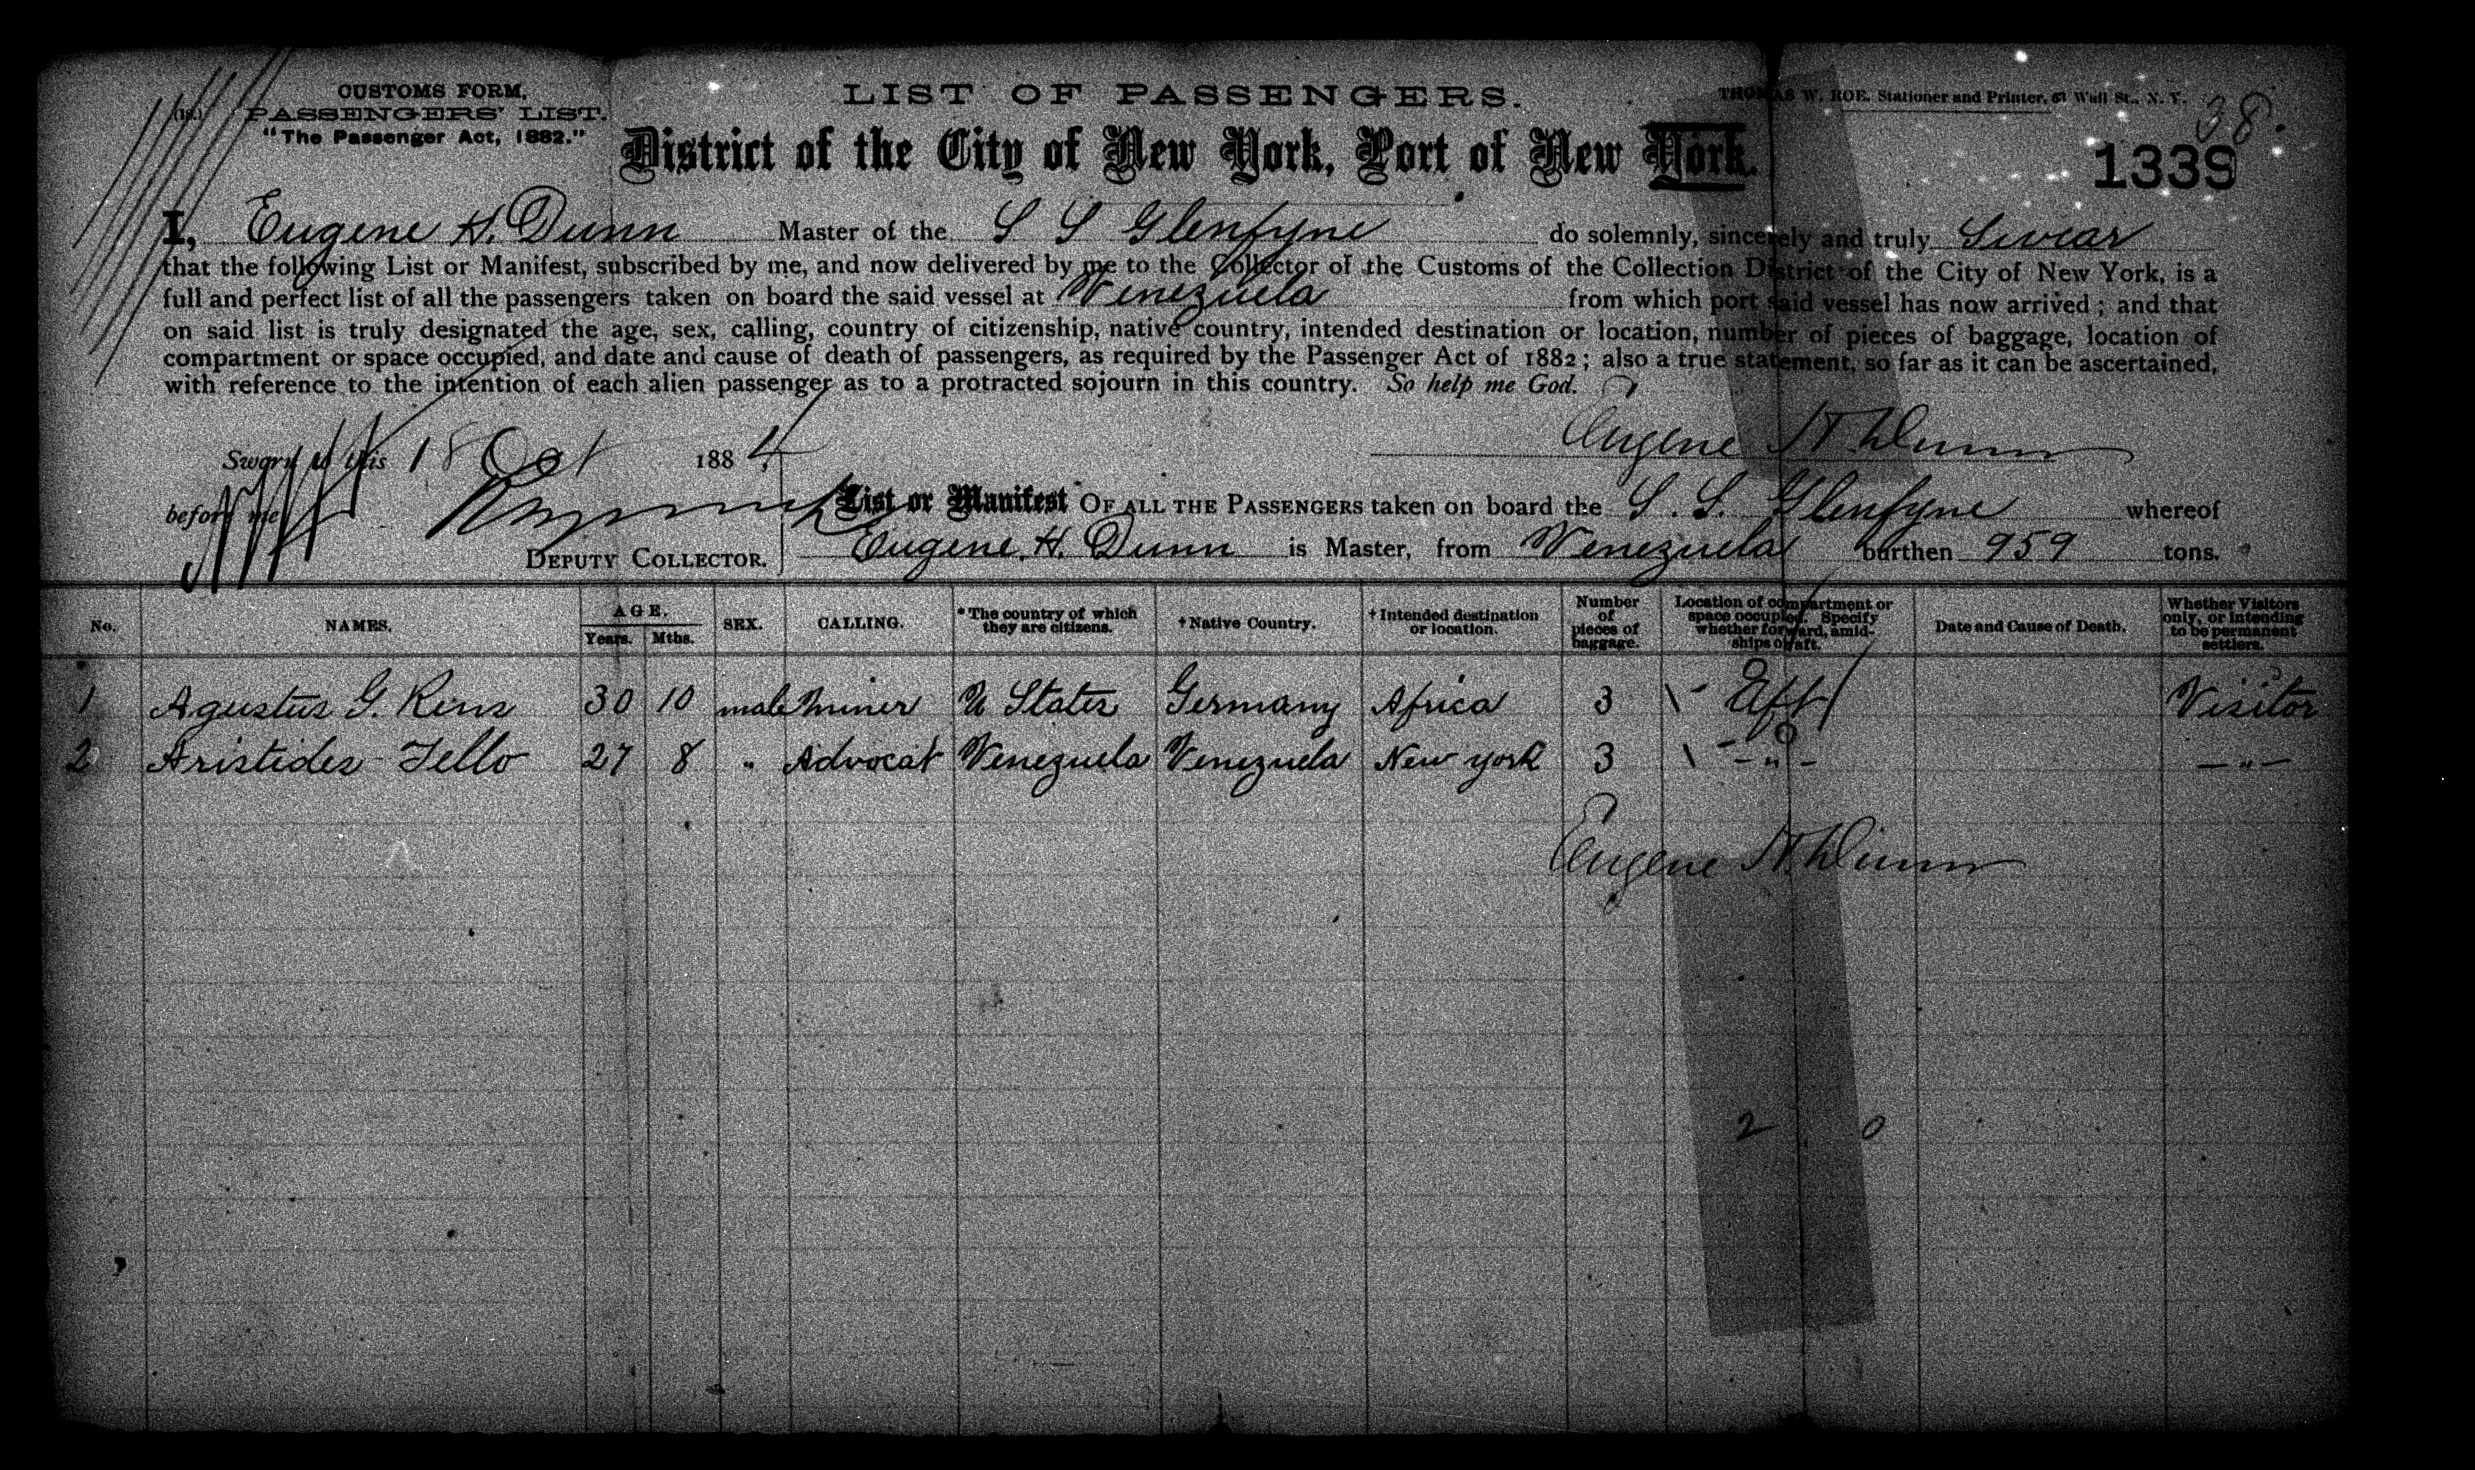 CUSTOMS FORM,
(18.) PASSENGERS' LIST.
"The Passenger Act, 1882."
LIST OF PASSENGERS.
THOMAS W. ROE, Stationer and Printer, 61 Wall St., N. Y.
38.
District of the City of New York, Port of New York.
1339
I, Eugene H. Dunn Master of the S S Glenfyne do solemnly, sincerely and truly Swear
that the following List or Manifest, subscribed by me, and now delivered by me to the Collector of the Customs of the Collection District of the City of New York, is a
full and perfect list of all the passengers taken on board the said vessel at Venezuela from which port said vessel has now arrived; and that
on said list is truly designated the age, sex, calling, country of citizenship, native country, intended destination or location, number of pieces of baggage, location of
compartment or space occupied, and date and cause of death of passengers, as required by the Passenger Act of 1882; also a true statement, so far as it can be ascertained,
with reference to the intention of each alien passenger as to a protracted sojourn in this country. So help me God.
Eugene H. Dunn
Sworn to this 18 Oct 1884
before me
DEPUTY COLLECTOR.
List or Manifest OF ALL THE PASSENGERS taken on board the S. S. Glenfyne whereof
Eugene H. Dunn is Master, from Venezuela burthen 959 tons.
No. NAMES. AGE. Years. Mths. SEX. CALLING. *The country of which they are citizens. †Native Country. †Intended destination or location. Number of pieces of baggage. Location of compartment or space occupied. Specify whether forward, amidships or aft. Date and Cause of Death. Whether Visitors only, or intending to be permanent settlers.
1 Agustus G. Rens 30 10 male Miner U States Germany Africa 3 Aft Visitor
2 Aristides Tello 27 8 " Advocat Venezuela Venezuela New york 3 -"- -"-
Eugene H. Dunn
2 0